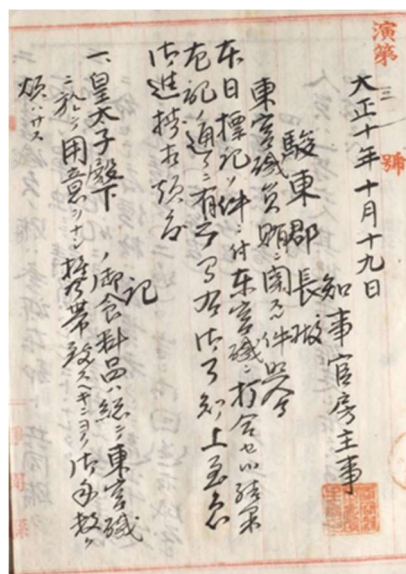 演第三號
大正十年十月十九日
知事官房主事
駿東郡長殿
東宮職員賄ニ関スル件照会
本日標記ノ件ニ付東宮職ニ打合セ候結果
左記ノ通ニ有之右御了知上至急
御進捗相煩度
記
一、皇太子殿下ノ御食料品ハ総テ東宮職
ニ於テ用意シ携帯致スヘキニヨリ御手数ヲ
煩ハサス